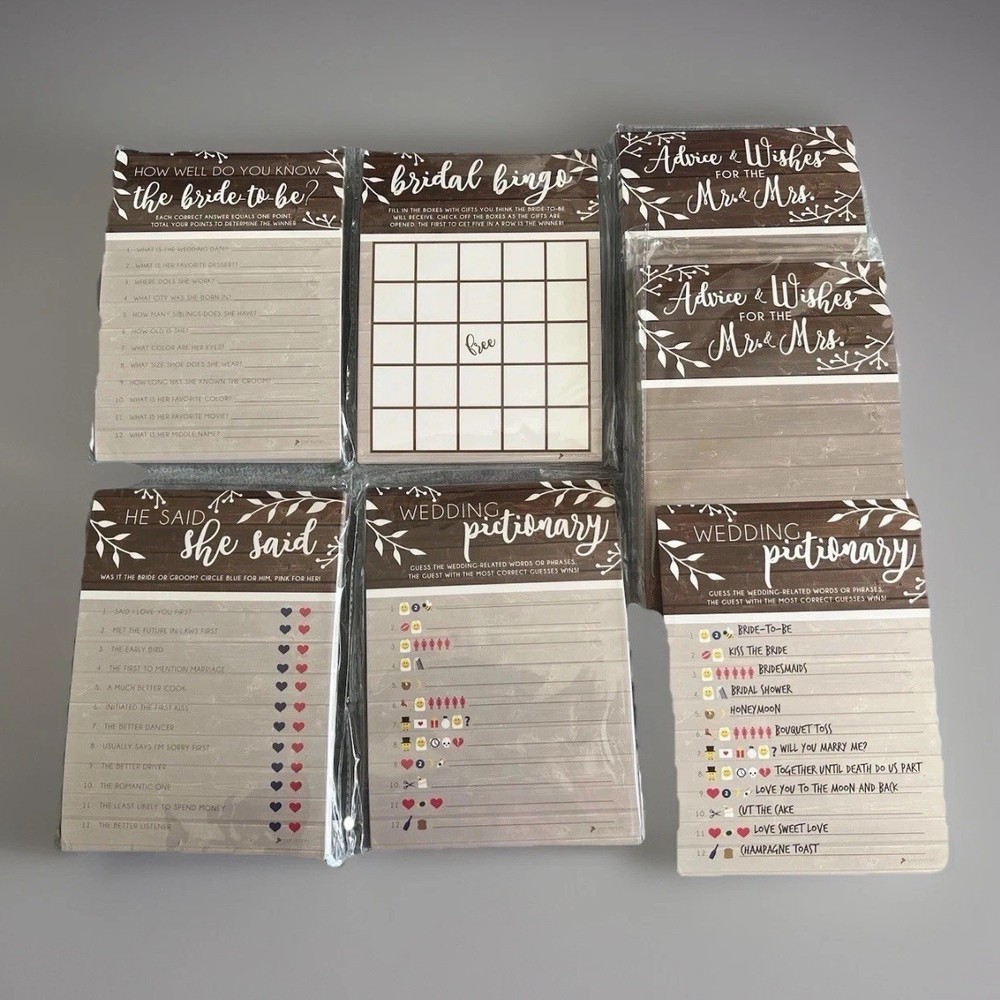 HOW WELL DO YOU KNOW
the bride to be?
EACH CORRECT ANSWER EQUALS ONE POINT.
TOTAL YOUR POINTS TO DETERMINE THE WINNER
1. WHAT IS THE WEDDING DATE?
2. WHAT IS HER FAVORITE DESSERT?
3. WHERE DOES SHE WORK?
4. WHAT CITY WAS SHE BORN IN?
5. HOW MANY SIBLINGS DOES SHE HAVE?
6. HOW OLD IS SHE?
7. WHAT COLOR ARE HER EYES?
8. WHAT SIZE SHOE DOES SHE WEAR?
9. HOW LONG HAS SHE KNOWN THE GROOM?
10. WHAT IS HER FAVORITE COLOR?
11. WHAT IS HER FAVORITE MOVIE?
12. WHAT IS HER MIDDLE NAME?
bridal bingo
FILL IN THE BOXES WITH GIFTS YOU THINK THE BRIDE-TO-BE
WILL RECEIVE. CHECK OFF THE BOXES AS THE GIFTS ARE
OPENED. THE FIRST TO GET FIVE IN A ROW IS THE WINNER!
free
Advice & Wishes
FOR THE
Mr. & Mrs.
Advice & Wishes
FOR THE
Mr. & Mrs.
HE SAID
she said
WAS IT THE BRIDE OR GROOM? CIRCLE BLUE FOR HIM, PINK FOR HER!
1. SAID I LOVE YOU FIRST
2. MET THE FUTURE IN-LAWS FIRST
3. THE EARLY BIRD
4. THE FIRST TO MENTION MARRIAGE
5. A MUCH BETTER COOK
6. INITIATED THE FIRST KISS
7. THE BETTER DANCER
8. USUALLY SAYS I'M SORRY FIRST
9. THE BETTER DRIVER
10. THE ROMANTIC ONE
11. THE LEAST LIKELY TO SPEND MONEY
12. THE BETTER LISTENER
WEDDING
pictionary
GUESS THE WEDDING-RELATED WORDS OR PHRASES.
THE GUEST WITH THE MOST CORRECT GUESSES WINS!
1. 2
2.
3.
4.
5.
6.
7. ?
8.
9. 2
10.
11.
12.
WEDDING
pictionary
GUESS THE WEDDING-RELATED WORDS OR PHRASES.
THE GUEST WITH THE MOST CORRECT GUESSES WINS!
1. 2 BRIDE-TO-BE
2. KISS THE BRIDE
3. BRIDESMAIDS
4. BRIDAL SHOWER
5. HONEYMOON
6. BOUQUET TOSS
7. ? WILL YOU MARRY ME?
8. TOGETHER UNTIL DEATH DO US PART
9. 2 LOVE YOU TO THE MOON AND BACK
10. CUT THE CAKE
11. LOVE SWEET LOVE
12. CHAMPAGNE TOAST